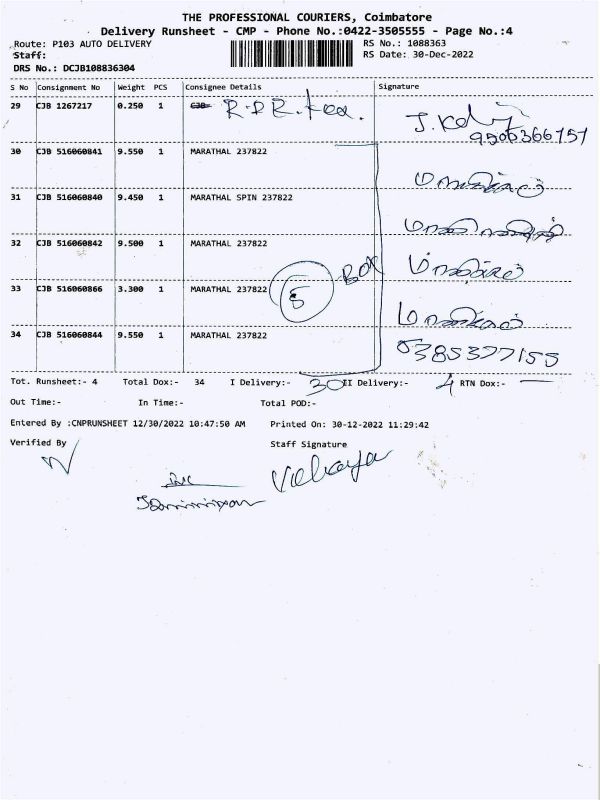 THE PROFESSIONAL COURIERS, Coimbatore
Delivery Runsheet - CMP - Phone No.:0422-3505555 - Page No.:4
Route: P103 AUTO DELIVERY RS No.: 1088363
Staff: RS Date: 30-Dec-2022
DRS No.: DCJB108836304
S No Consignment No Weight PCS Consignee Details Signature
29 CJB 1267217 0.250 1
9506366757
30 CJB 516060841 9.550 1 MARATHAL 237822
31 CJB 516060840 9.450 1 MARATHAL SPIN 237822
32 CJB 516060842 9.500 1 MARATHAL 237822
33 CJB 516060866 3.300 1 MARATHAL 237822 5 BOX
34 CJB 516060844 9.550 1 MARATHAL 237822
Tot. Runsheet:- 4 Total Dox:- 34 I Delivery:- 30 II Delivery:- 4 RTN Dox:-
Out Time:- In Time:- Total POD:-
Entered By :CNPRUNSHEET 12/30/2022 10:47:50 AM Printed On: 30-12-2022 11:29:42
Verified By Staff Signature